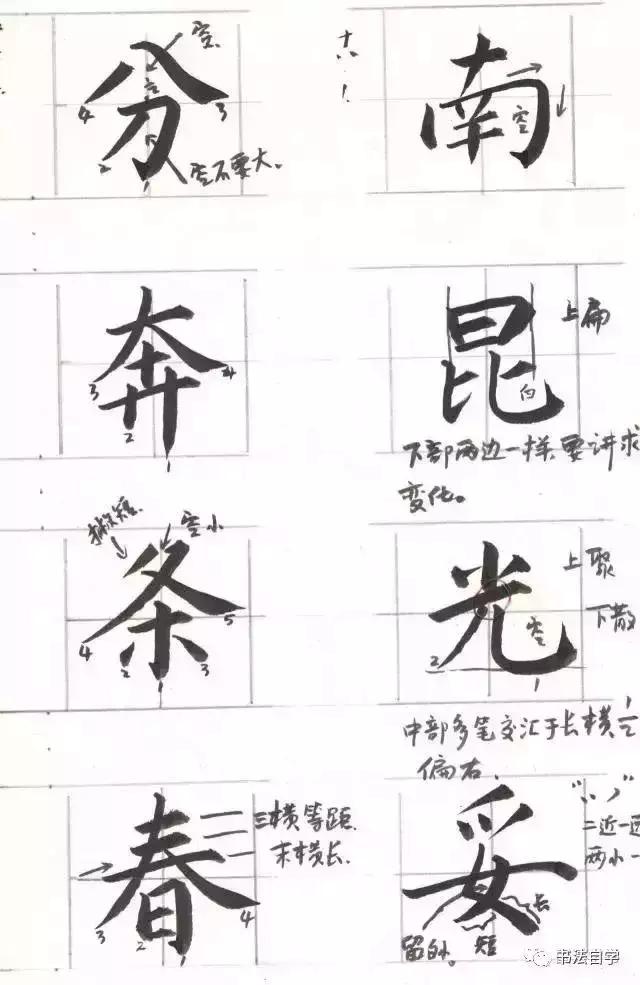 空
分
4 3
2
1
空不要大。
南
空
奔
3 4
2
1
昆
上扁
白
下部两边一样,要讲求
变化。
空小
条
4 5
2 3
1
光
上聚
下散
空
2
1
中部多笔交汇于长横1/2
偏右.
春
三横等距
末横长.
3 4
2
1
妥
二近一远
两小一
长
留的。
短
书法自学